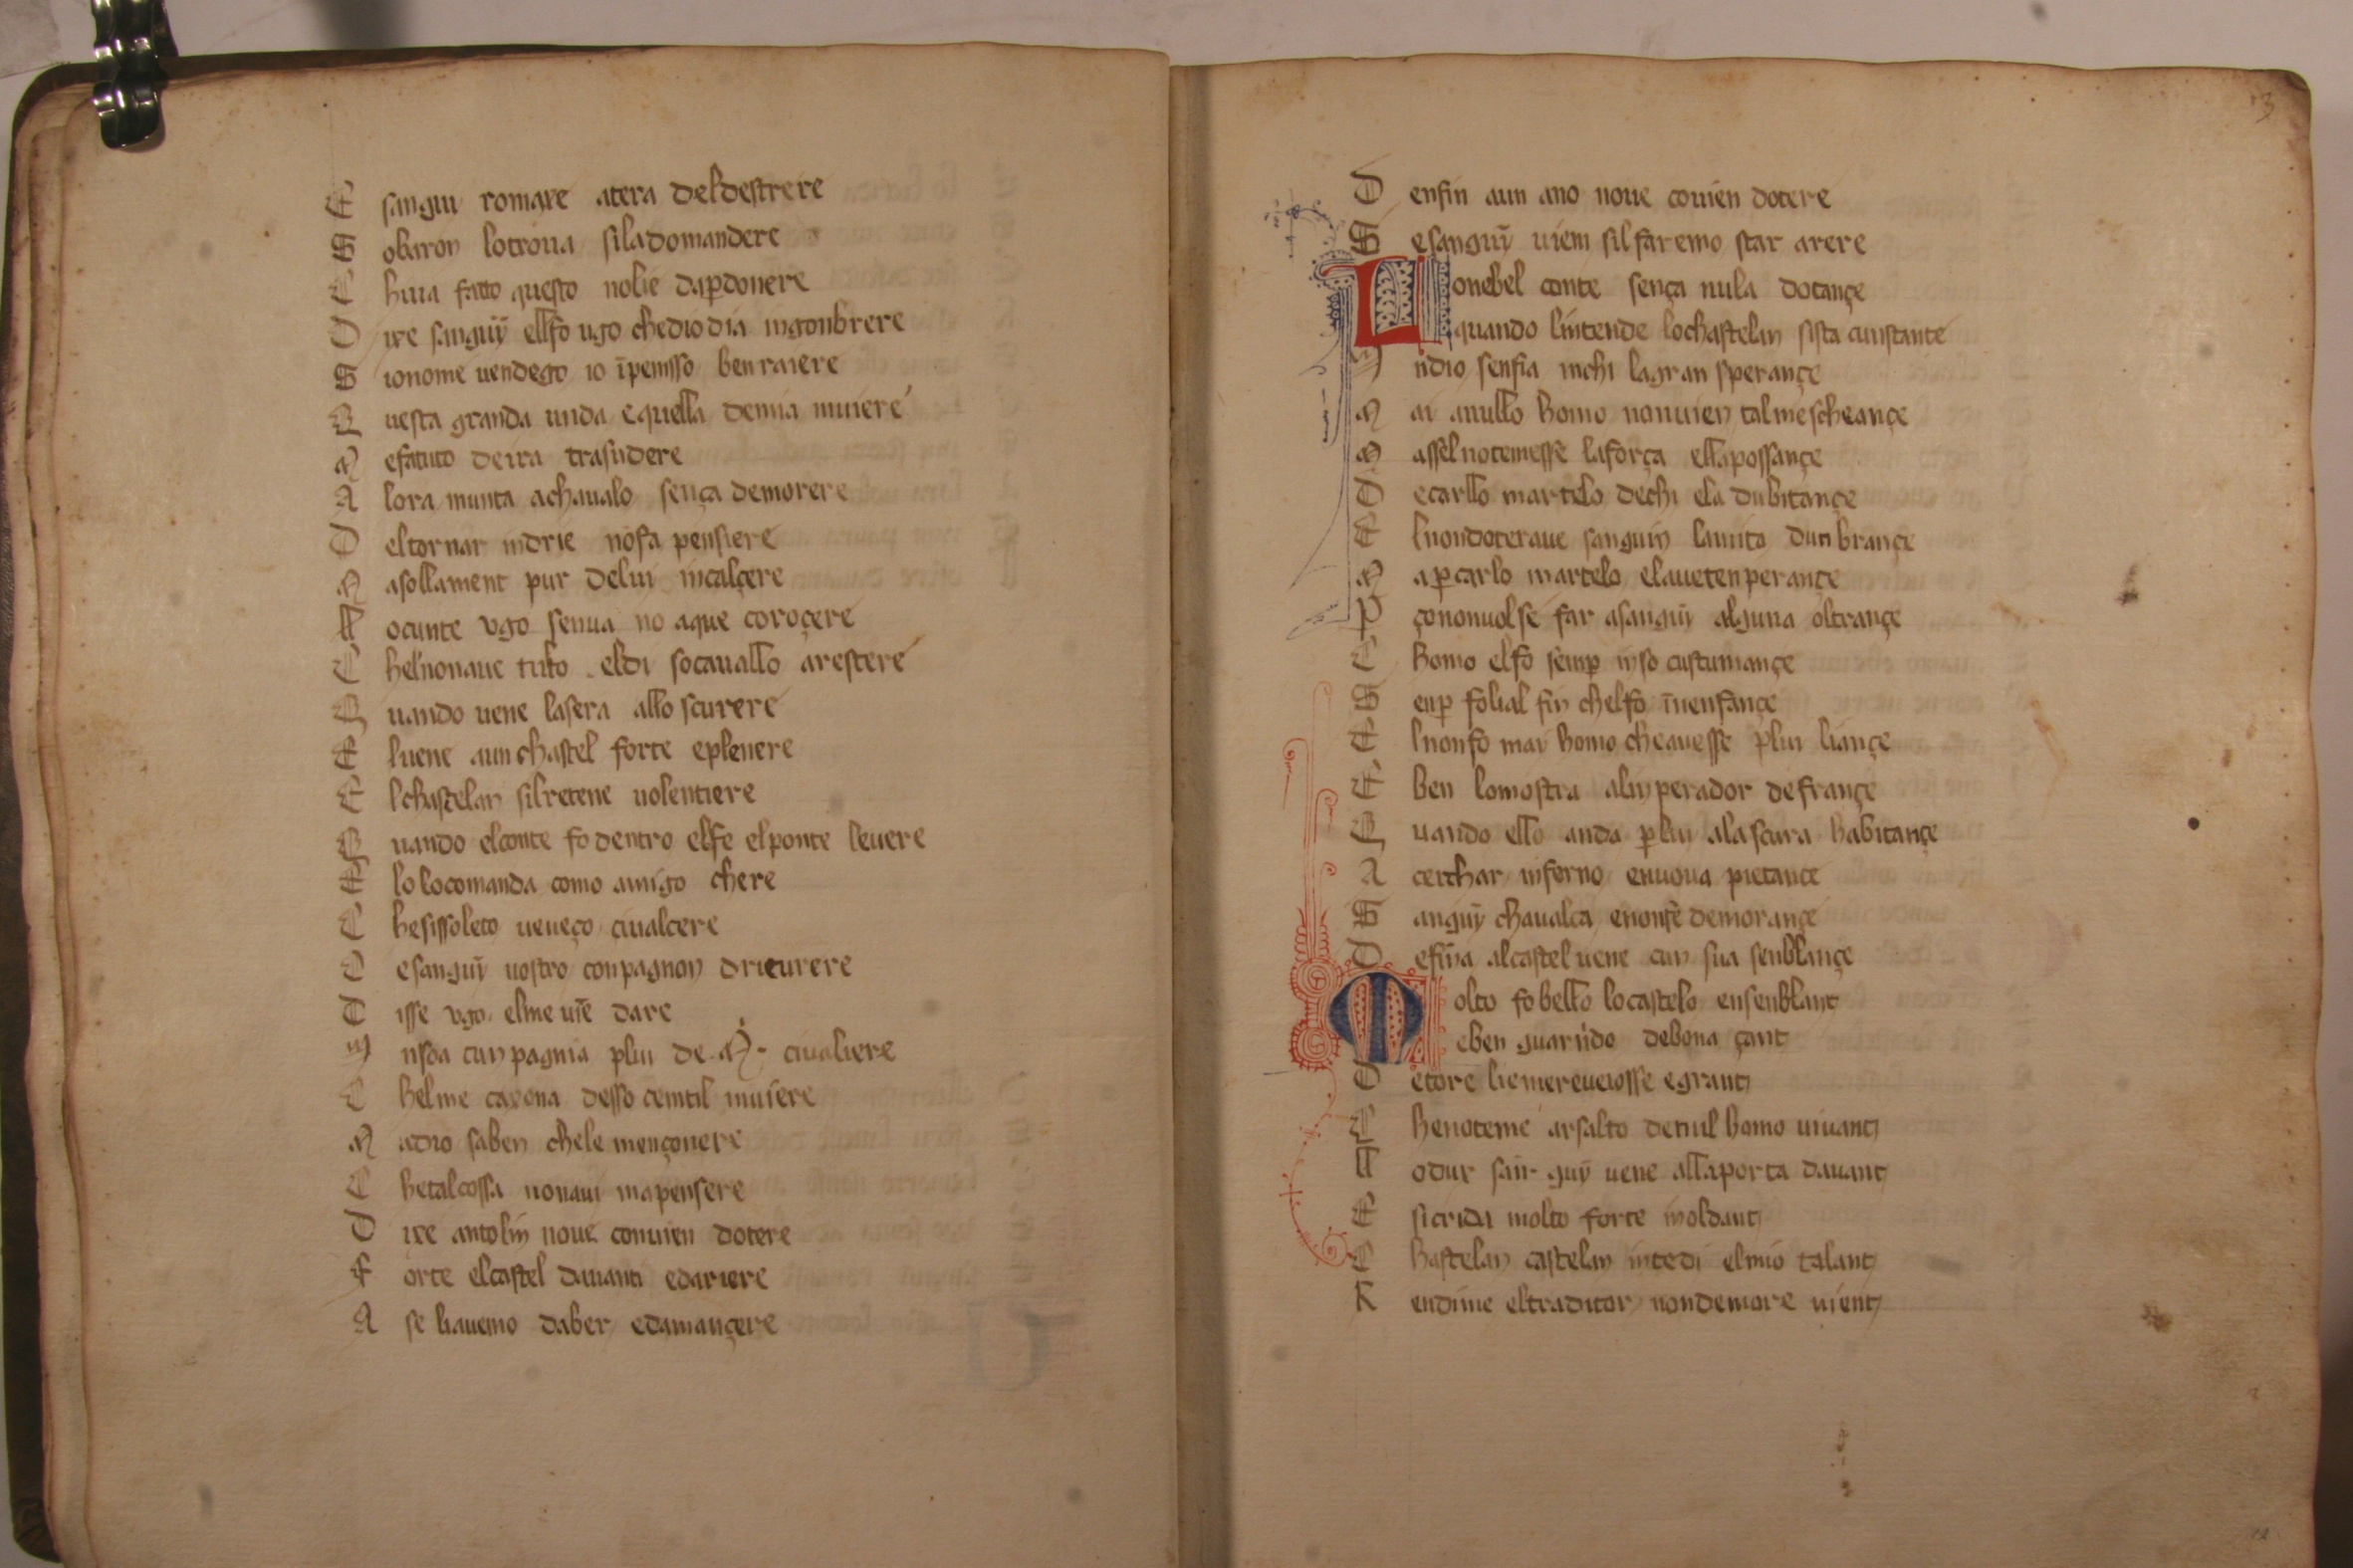 E sangui romaxe atera deldestrere
S obaron lotroua siladomandere
C huia fatto questo nolie daꝑdonere
D ixe sanguÿ ellfo ugo chediodia ingonbrere
S ionome uendego io īpenisso ben raiere
Q uesta granda unda equella demia muiere
N efatuto deira trasudere
A lora munta achaualo sença demorere
D eltornar indrie nōfa pensiere
M asollament pur delui incalçere
ll ocunte vgo senua no aque coroçere
C helnonaue tuto eldi socauallo arestere
Q uando uene lasera allo scurere
E luene aunchastel forte eplenere
E lchastelan silretene uolentiere
Q uando elconte fo dentro elfe elponte leuere
E lo locomanda como amigo chere
C hesissoleto ueueço ciualcere
D esanguÿ uostro conpagnon driturere
D isse vgo elme uiē dare
In nsoa cunpagnia plui de .M. ciualiere
C helme caxona desso centil muiere
M adio saben chele mençonere
C hetalcossa nonaui mapensere
D ixe antolin noue conuien dotere
F orte elcastel dauanti edariere
A se liauemo daber edamançere
3
D enfin aun ano noue couien dotere
S esanguÿ uiem silfaremo star arere
L onebel conte sença nula dotançe
quando lintende lochastelan sista cunstante
I ndio senfia inchi lagran sperançe
M ai anullo homo nonuien talmescheançe
N assel notemesse laforça ellapossançe
D ecarllo martelo dechi ela dubitançe
E lnondoteraue sanguin lauito dun brançe
M aꝑcarlo martelo elauetenperançe
P çononuolse far asanguÿ alguna oltrançe
C homo elfo semꝑ inso custumançe
S enꝑ folial fin chelfo īnenfançe
E lnonfo mai homo cheauesse plui liançe
E ben lomostra aliunperador defrançe
Q uando ello anda ꝑlui alascura habitançe
A cerchar inferno enuoua pietance
S anguÿ chaualca enonfe demorançe
D efina alcastel uene cun sua senblançe
M olto fobello locastelo ensenblant
eben guarnido debona çant
D etore liemereueiosse egrant
C henoteme arsalto denul homo uiuant
ll odux san guÿ uene allaporta dauant
E sicrida molto forte inoldant
C hastelan castelan intedi elmio talant
R endime eltraditor nondemore nient